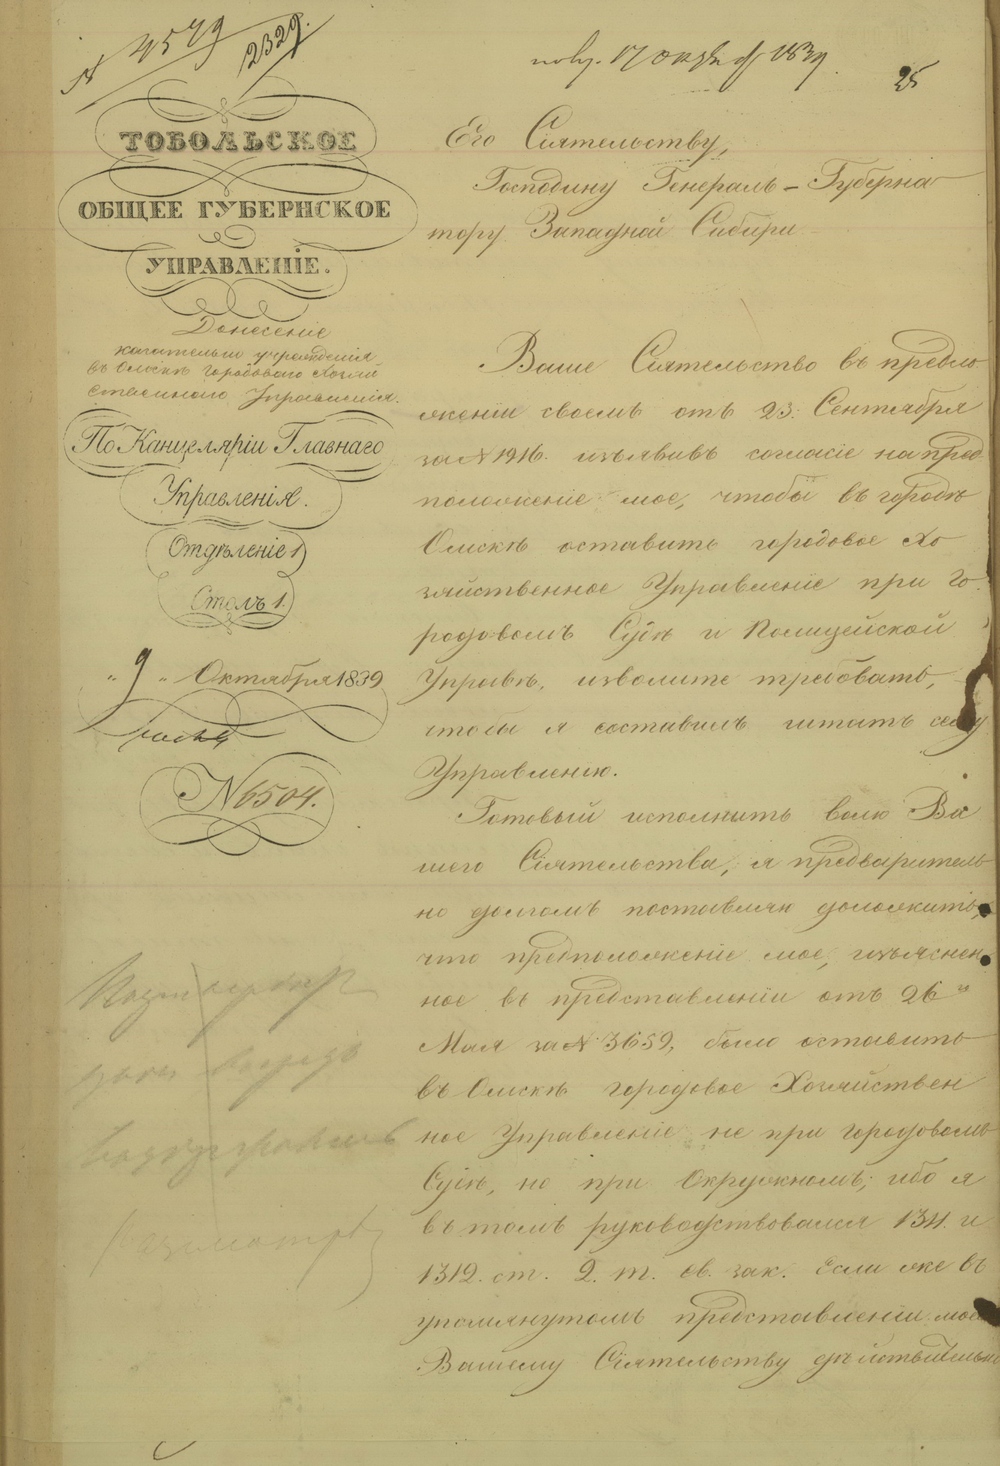 № 4579
2329.
25
ТОБОЛЬСКОЕ
ОБЩЕЕ ГУБЕРНСКОЕ
УПРАВЛЕНІЕ.
Донесеніе
касательно учрежденія
въ Омскѣ городоваго Хозяй
ственнаго Управленія.
По Канцеляріи Главнаго
Управленія.
Отдѣленіе 1
Столъ 1.
„ 9 „ Октября 1839
№ 6504.
Его Сіятельству,
Господину Генералъ-Губерна
тору Западной Сибири
Ваше Сіятельство въ предло
женіи своемъ отъ 23. Сентября
за № 1916. изъявивъ согласіе на пред
положеніе мое, чтобы въ городѣ
Омскѣ оставить городовое Хо
зяйственное Управленіе при Го
родовомъ Судѣ и Полицейской
Управѣ, изволите требовать,
чтобы я составилъ штатъ сему
Управленію.
Готовый исполнить волю Ва
шего Сіятельства, я предваритель
но долгомъ поставляю доложить,
что предположеніе мое, изъяснен
ное въ представленіи отъ 26го
Мая за № 3659, было оставить
въ Омскѣ городовое Хозяйствен
ное Управленіе не при городовомъ
Судѣ, но при Окружномъ; ибо я
въ томъ руководствовался 1311. и
1312. ст. 2. т. св. зак. Если же въ
упомянутомъ представленіи моемъ
Вашему Сіятельству дѣйствительно